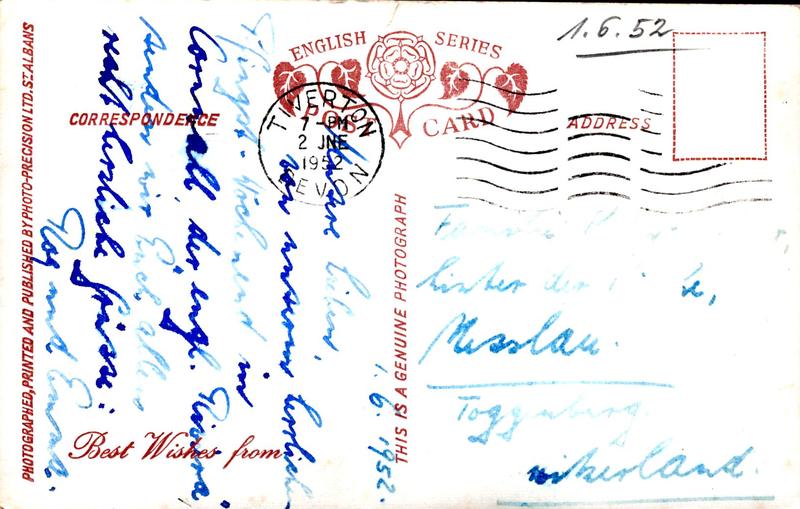 1.6.52
ENGLISH SERIES
POST CARD
CORRESPONDENCE
ADDRESS
TIVERTON
7-PM
2 JNE
1952
DEVON
PHOTOGRAPHED, PRINTED AND PUBLISHED BY PHOTO-PRECISION LTD. ST. ALBANS
THIS IS A GENUINE PHOTOGRAPH
Best Wishes from
1.6.1952.
Lieben,
von unserem herrlichen
Pfingst-Wochenend in
Cornwall der engl. Riviera
senden wir Euch allen
recht herzliche Grüsse:
und
Familie
hinter der
Nesslau.
Toggenburg.